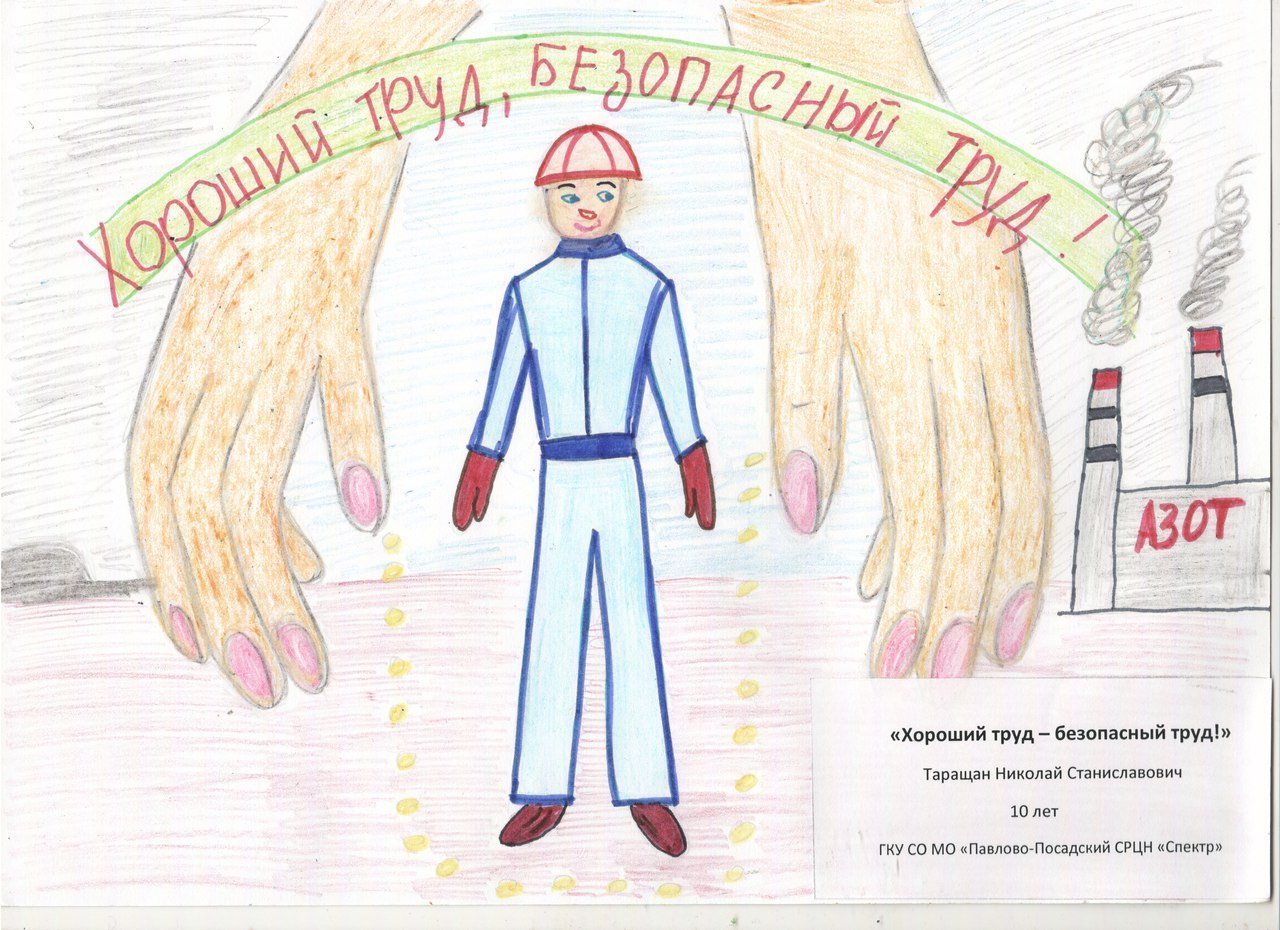 Хороший труд, БЕЗОПАСНЫЙ ТРУД!
АЗОТ
«Хороший труд – безопасный труд!»
Таращан Николай Станиславович
10 лет
ГКУ СО МО «Павлово-Посадский СРЦН «Спектр»